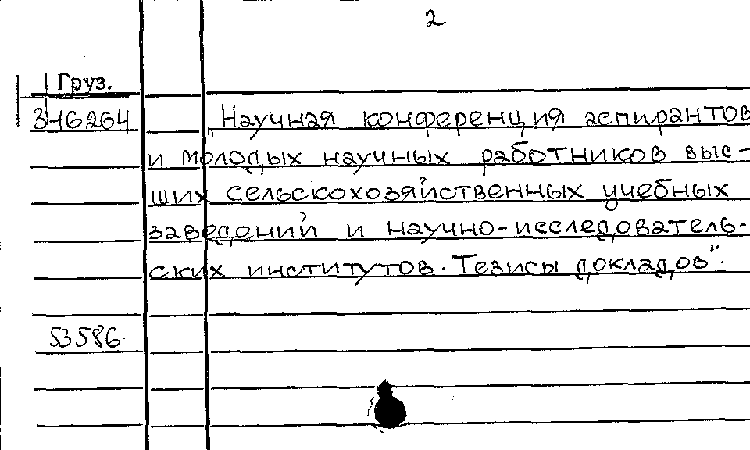 2
Груз.
3-16264 Научная конференция аспирантов
и молодых научных работников выс-
ших сельскохозяйственных учебных
заведений и научно-исследователь-
ских институтов. Тезисы докладов".
53586